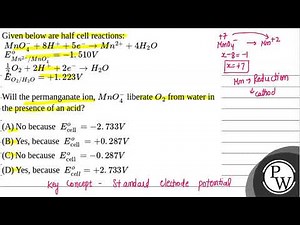 Given below are half cell reactions:
MnO₄⁻ + 8H⁺ + 5e⁻ → Mn²⁺ + 4H₂O
E°Mn²⁺/MnO₄⁻ = −1.510V
½O₂ + 2H⁺ + 2e⁻ → H₂O
E°O₂/H₂O = +1.223V
Will the permanganate ion, MnO₄⁻ liberate O₂ from water in
the presence of an acid?
(A) No because E°cell = −2.733V
(B) Yes, because E°cell = +0.287V
(C) No because E°cell = −0.287V
(D) Yes, because E°cell = +2.733V
+7
MnO₄⁻ → Mn⁺²
x−8=−1
x=+7
Mn → Reduction
↳ cathod
Key concept - Standard electrode potential
PW